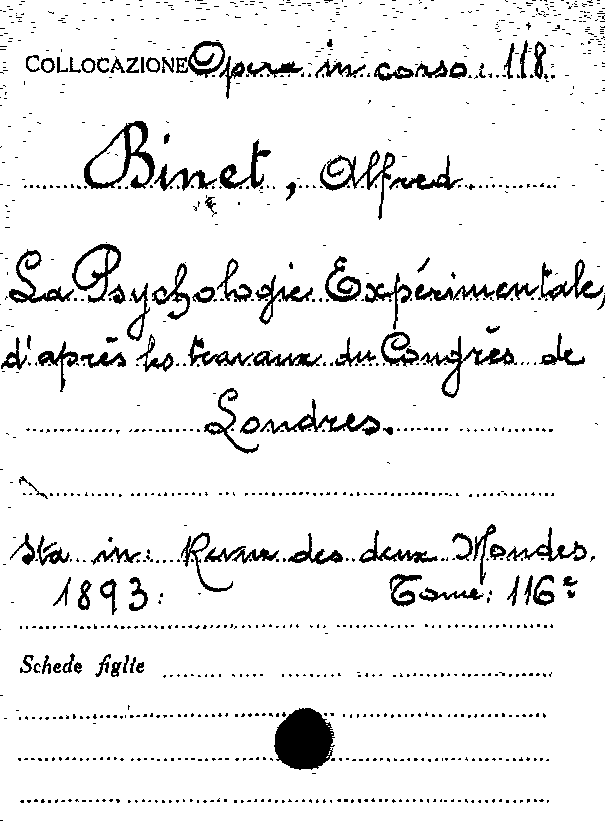 COLLOCAZIONE Opera in corso: 118.
Binet, Alfred.
La Psychologie Expérimentale,
d'après les travaux du Congrès de
Londres.
Sta in: Revue des deux Mondes.
1893: Tome: 116e
Schede figlie